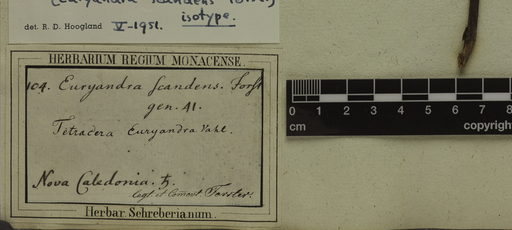 (Euryandra scandens Forst.)
isotype.
det. R. D. Hoogland V-1951.
HERBARIUM REGIUM MONACENSE.
104. Euryandra scandens. Forst
gen. 41.
Tetracera Euryandra Vahl.
Nova Caledonia. ♄.
Legit et Comm. Forster.
Herbar. Schreberianum.
0 1 2 3 4 5 6 7 8
cm copyright